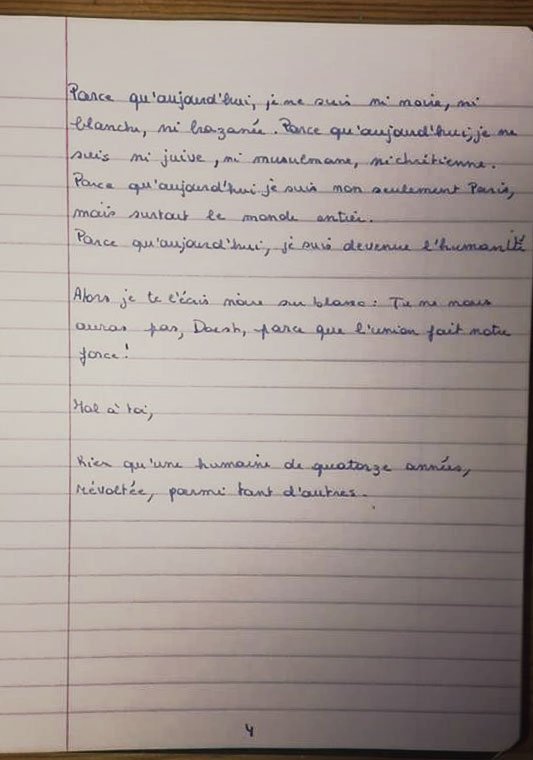 Parce qu'aujourd'hui, je ne suis ni noire, ni
blanche, ni bazanée. Parce qu'aujourd'hui, je ne
suis ni juive, ni musulmane, ni chrétienne.
Parce qu'aujourd'hui je suis non seulement Paris,
mais surtout le monde entier.
Parce qu'aujourd'hui, je suis devenue l'humanité
Alors je te l'écris noire sur blanc : Tu ne nous
auras pas, Daesh, parce que l'union fait notre
force !
Mal à toi,
Rien qu'une humaine de quatorze années,
révoltée, parmi tant d'autres.
4